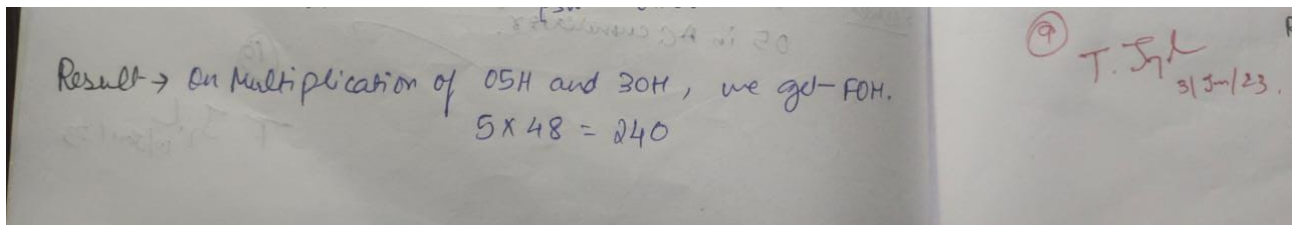 Result → On Multiplication of 05H and 30H, we get FOH.
5 x 48 = 240
9
T.
3/Jun/23.